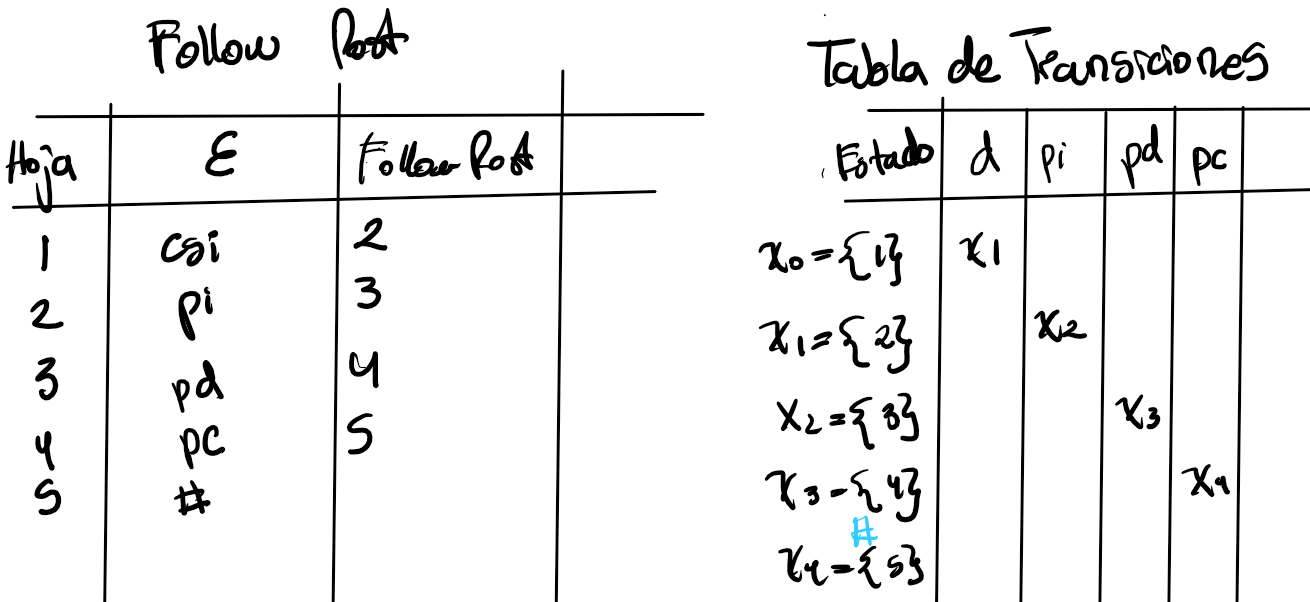 Follow Post
Hoja ε Follow Post
1 csi 2
2 pi 3
3 pd 4
4 pc 5
5 #
Tabla de Transiciones
Estado d pi pd pc
x0={1} x1
x1={2} x2
x2={3} x3
x3={4} x4
#
x4={5}